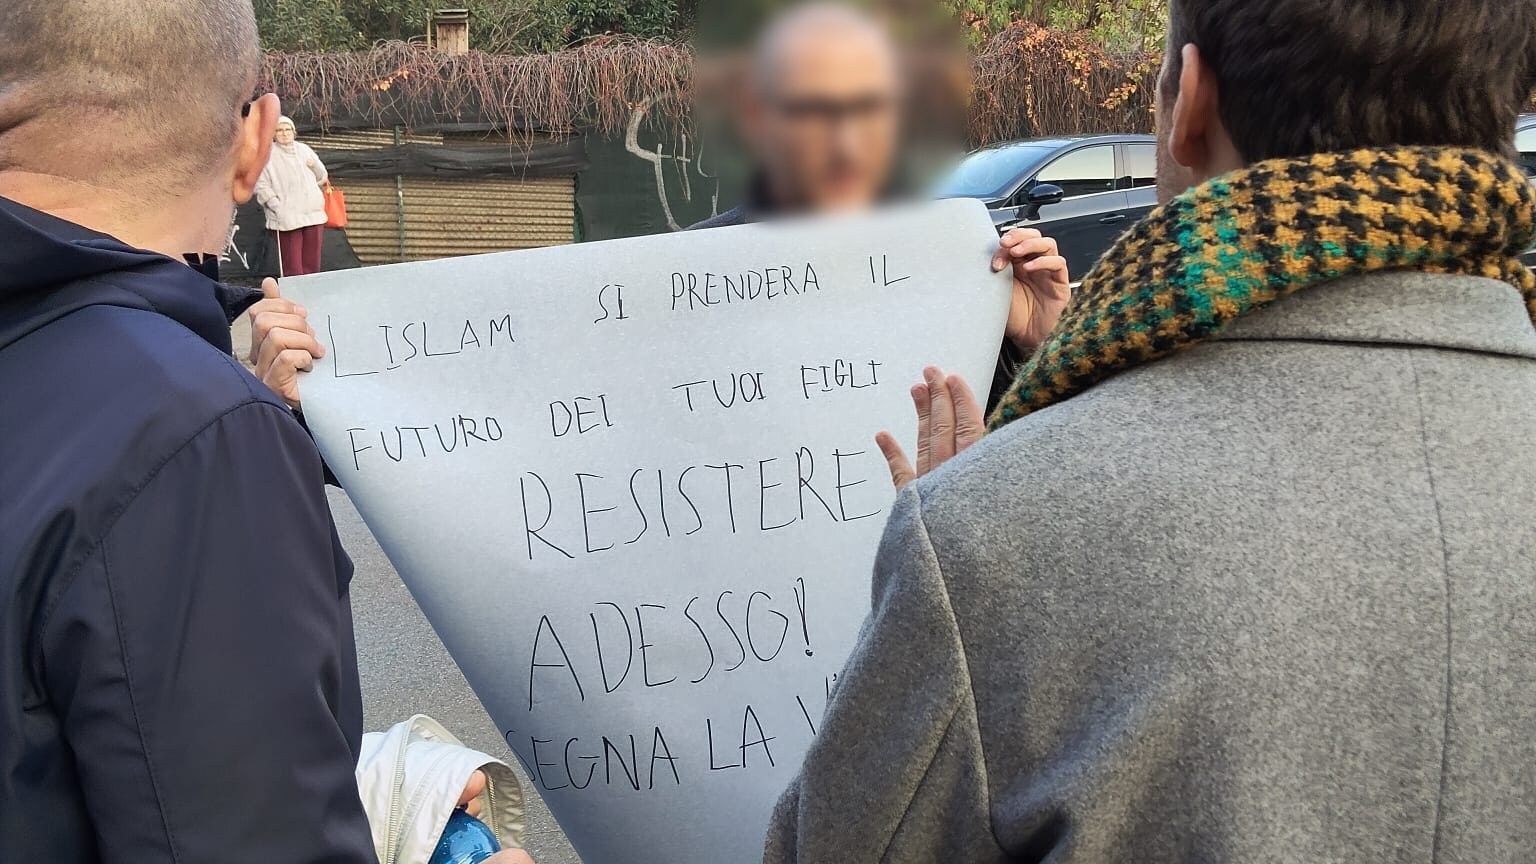 L ISLAM SI PRENDERA IL
FUTURO DEI TUOI FIGLI
RESISTERE
ADESSO!
SEGNA LA